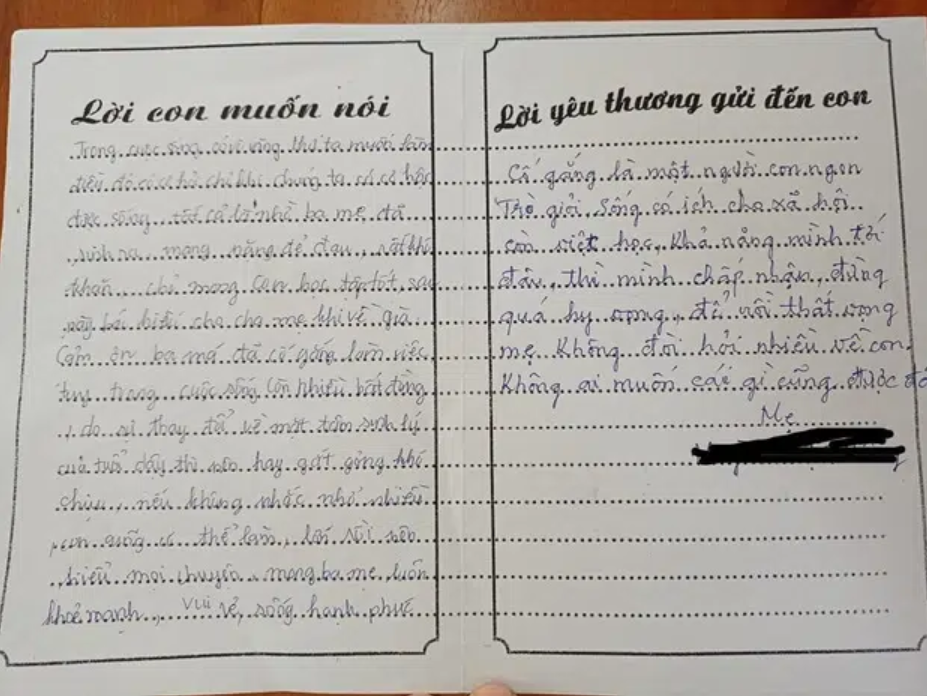 Lời con muốn nói
Trong cuộc sống có lẽ rằng thứ ta muốn làm
điều đó có chỉ khi chúng ta có cơ hội
được sống, tất cả là nhờ ba mẹ đã
sinh ra, mang nặng đẻ đau, rất khó
khăn, chỉ mong con học tập tốt, sau
này báo hiếu cho cha mẹ khi về già.
Cảm ơn ba má đã cố gắng làm việc
tuy trong cuộc sống còn nhiều bất đồng
, do sự thay đổi về mặt tâm sinh lý
của tuổi dậy thì nên hay gắt gỏng khó
chịu, nếu không nhắc nhở nhiều
, con cũng có thể làm, lớn rồi nên
hiểu mọi chuyện, mong ba mẹ luôn
khoẻ mạnh, vui vẻ, sống hạnh phúc
Lời yêu thương gửi đến con
Cố gắng là một người con ngon
Trò giỏi, Sống có ích cho xã hội
còn việc học, Khả năng mình tới
đâu, thì mình chấp nhận, đừng
quá hy vọng, để rồi thất vọng
mẹ Không đòi hỏi nhiều về con.
Không ai muốn cái gì cũng được đó
Mẹ